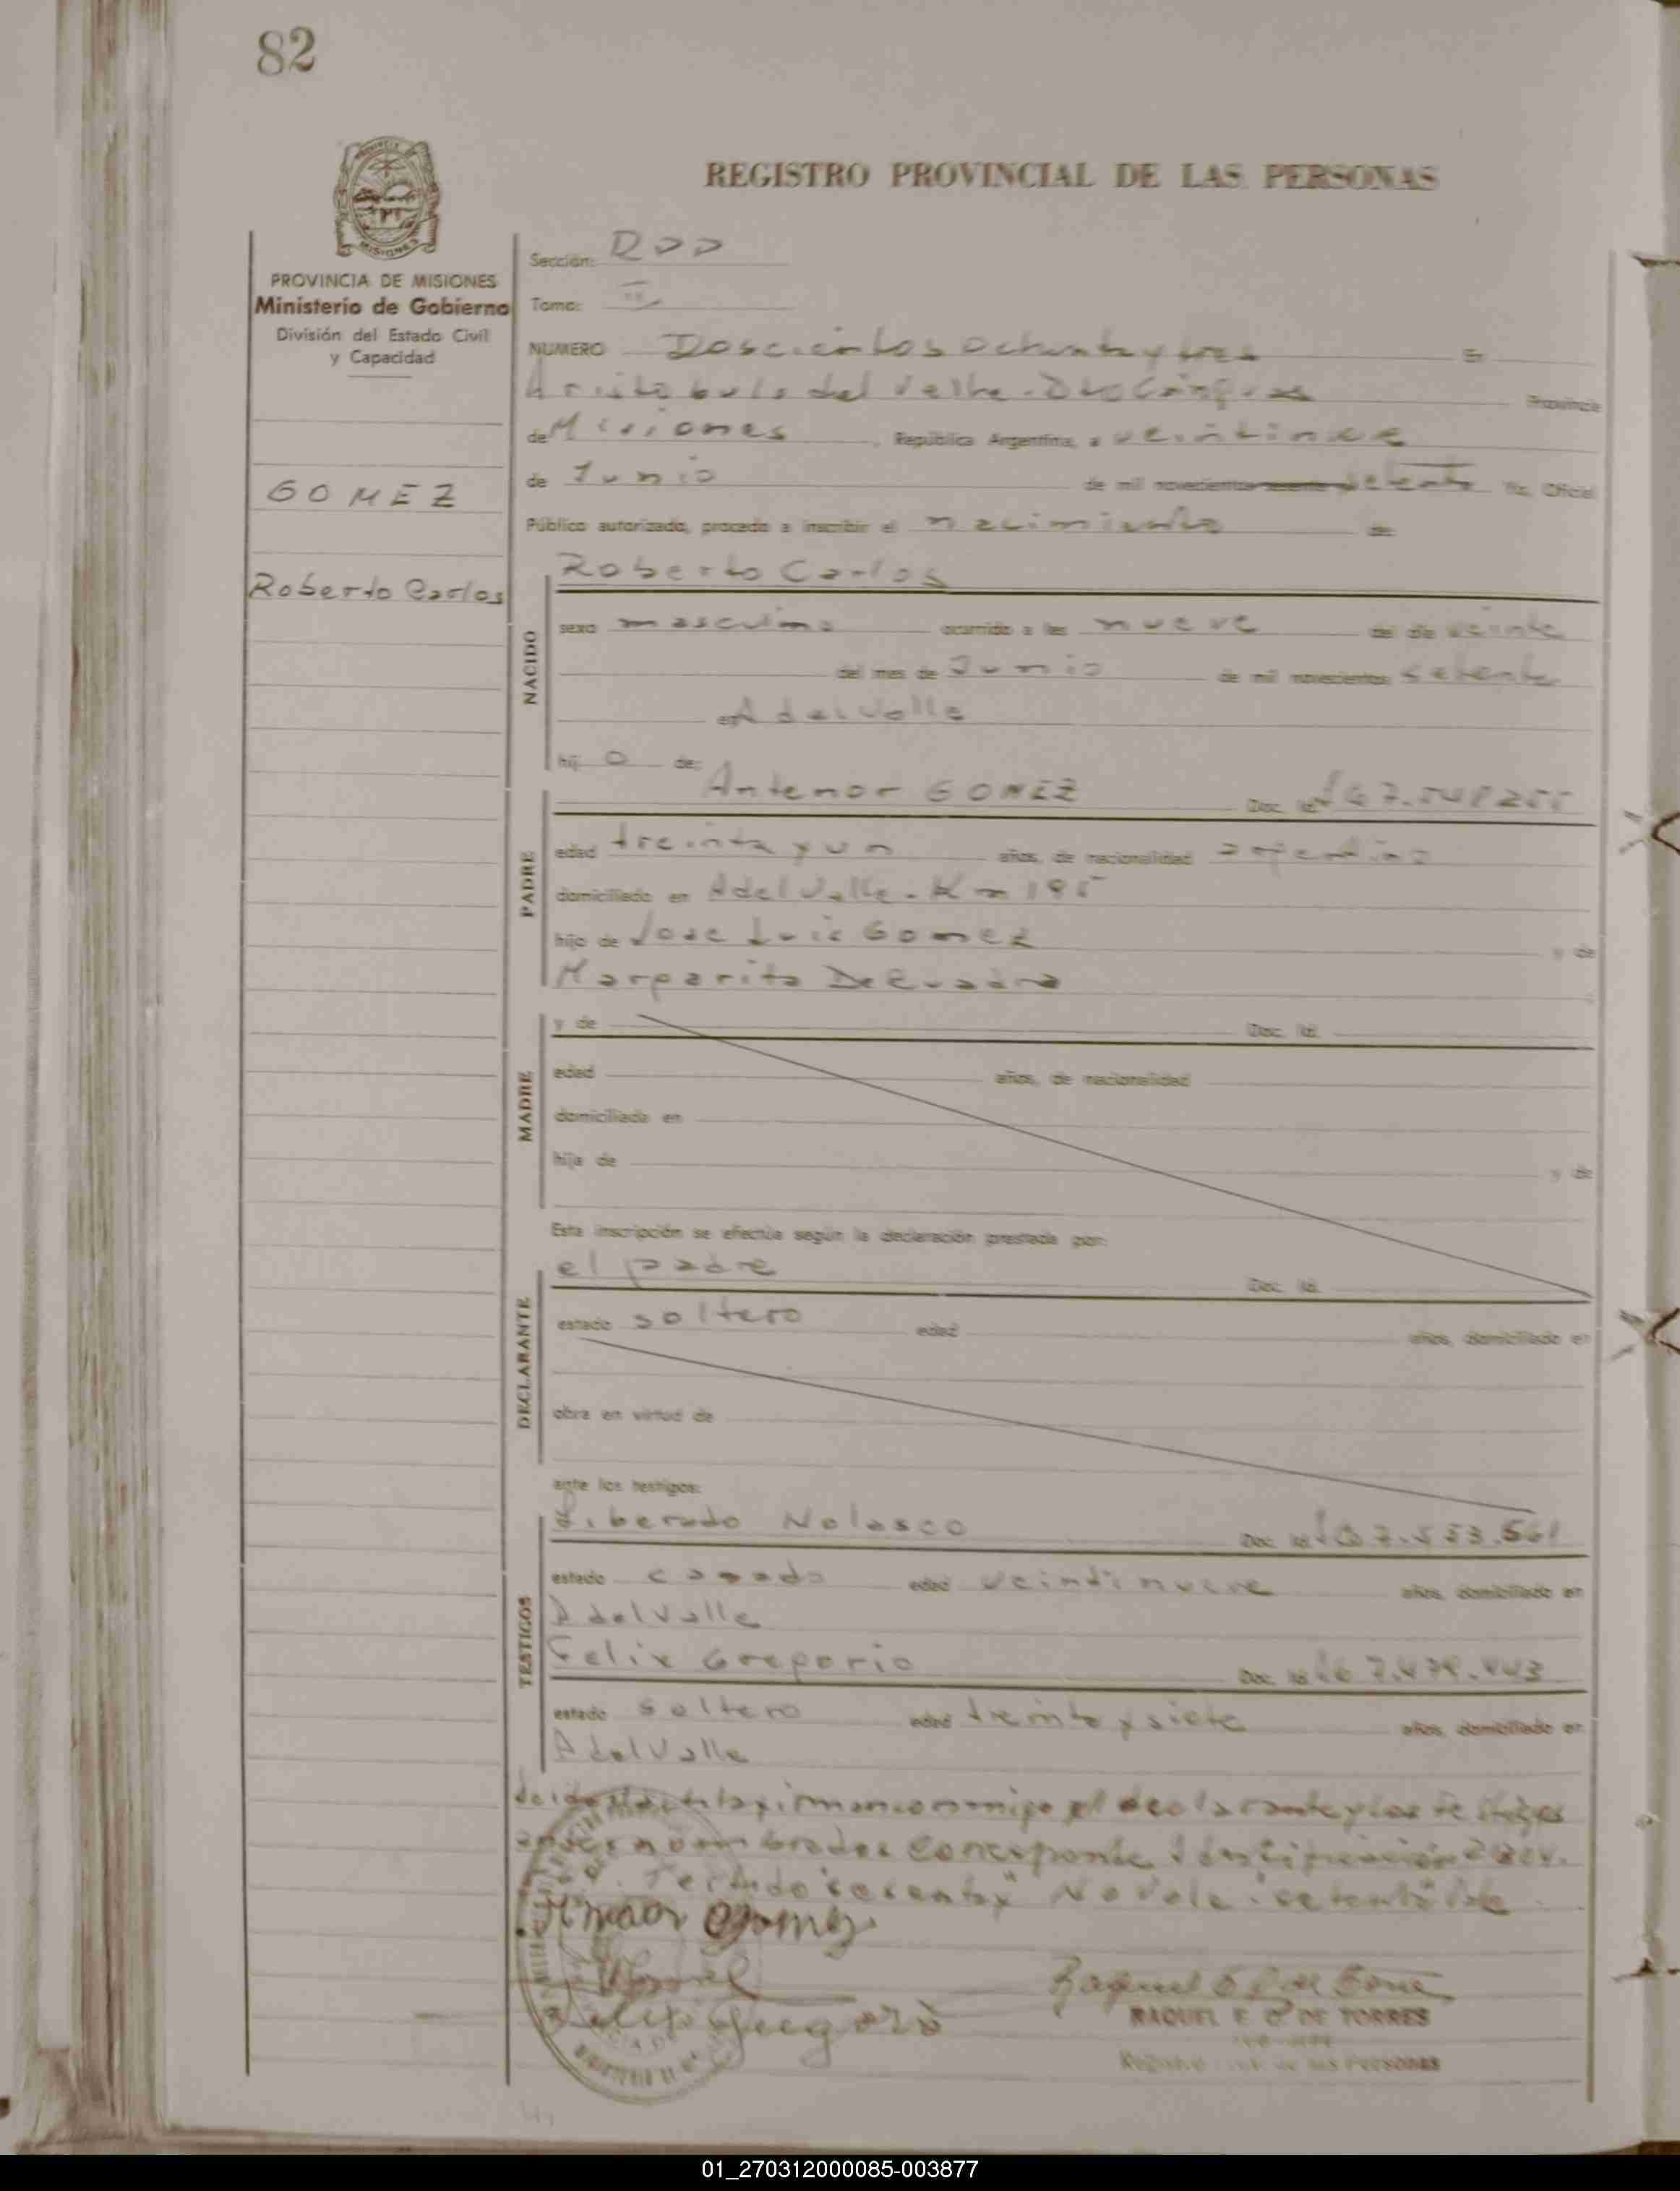 82
REGISTRO PROVINCIAL DE LAS PERSONAS
PROVINCIA DE MISIONES
Ministerio de Gobierno
División del Estado Civil
y Capacidad
GOMEZ
Roberto Carlos
Sección:
Tomo: II
NUMERO Doscientos ochenta y tres En
Aristobulo del Valle - Dto Cainguas Provincia
de Misiones, República Argentina, a
de Junio de mil novecientos setenta Yo, Oficial
Público autorizado, procedo a inscribir el nacimiento de
NACIDO
Roberto Carlos
sexo masculino ocurrido a las nueve del día veinte
del mes de Junio de mil novecientos setenta
en A del Valle
hij o de:
PADRE
Antenor GOMEZ Doc. Id.
edad treinta y un años, de nacionalidad argentino
domiciliado en A del Valle - Km 195
hijo de Jose Luis Gomez y de
Margarita De Quadra
MADRE
y de Doc. Id.
edad años, de nacionalidad
domiciliada en
hija de y de
Esta inscripción se efectúa según la declaración prestada por:
DECLARANTE
el padre Doc. Id.
estado soltero edad años, domiciliado en
obra en virtud de
ante los testigos:
TESTIGOS
Liberado Nolasco Doc. Id. 7.553.561
estado casado edad veintinueve años, domiciliado en
A del Valle
Felix Gregorio Doc. Id. 7.479.443
estado soltero edad treinta y siete años, domiciliado en
A del Valle
firman conmigo el declarante y los testigos
Corresponde
Testado "sesenta" No Vale "setenta" Vale
RAQUEL E. O DE TORRES
DE LAS PERSONAS
01_270312000085-003877